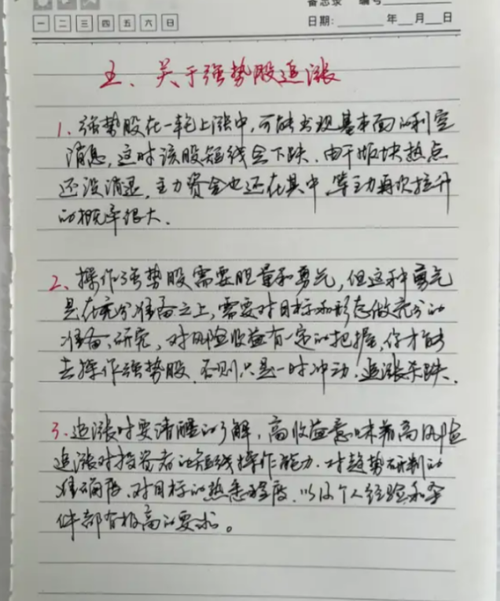 备忘录 编号
一 二 三 四 五 六 日
日期: 年 月 日
五、关于强势股追涨
1、强势股在一轮上涨中,可能出现基本面的利空
消息,这时该股短线会下跌.由于版块热点
还没消退,主力资金也还在其中,等主力再次拉升
的概率很大.
2、操作强势股需要胆量和勇气,但这种勇气
是在充分准备之上,需要对目标和形态做充分的
准备、研究,对风险收益有一定的把握,你才能够
去操作强势股.否则只是一时冲动,追涨杀跌.
3、追涨时要清醒的了解,高收益意味着高风险
追涨对投资者的短线操作能力.对趋势研判的
准确度、对目标的熟悉程度、以及个人经验和条
件都有极高的要求。